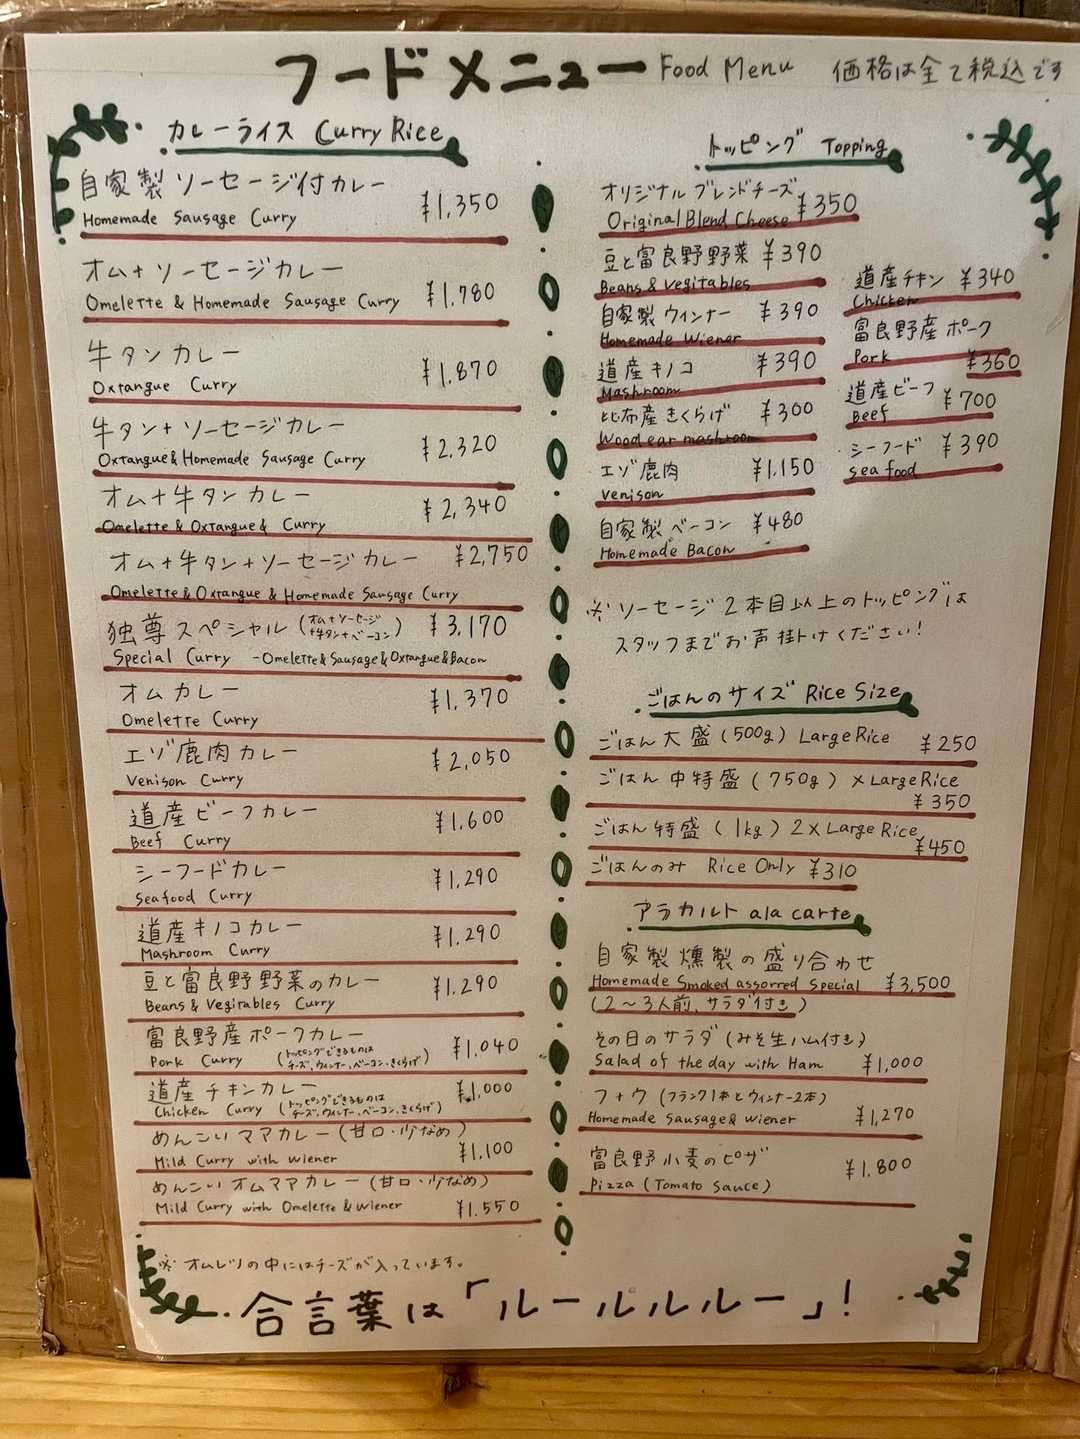 フードメニュー Food Menu 価格は全て税込です
カレーライス Curry Rice
自家製ソーセージ付カレー ¥1,350
Homemade Sausage Curry
オム+ソーセージカレー ¥1,780
Omelette & Homemade Sausage Curry
牛タンカレー ¥1,870
Oxtangue Curry
牛タン+ソーセージカレー ¥2,320
Oxtangue & Homemade Sausage Curry
オム+牛タンカレー ¥2,340
Omelette & Oxtangue & Curry
オム+牛タン+ソーセージカレー ¥2,750
Omelette & Oxtangue & Homemade Sausage Curry
独尊スペシャル(オム+ソーセージ+牛タン+ベーコン) ¥3,170
Special Curry -Omelette & Sausage & Oxtangue & Bacon
オムカレー ¥1,370
Omelette Curry
エゾ鹿肉カレー ¥2,050
Venison Curry
道産ビーフカレー ¥1,600
Beef Curry
シーフードカレー ¥1,290
Seafood Curry
道産キノコカレー ¥1,290
Mashroom Curry
豆と富良野野菜のカレー ¥1,290
Beans & Vegitables Curry
富良野産ポークカレー ¥1,040
Pork Curry (トッピングできるものはチーズ、ウィンナー、ベーコン、きくらげ)
道産チキンカレー ¥1,000
Chicken Curry (トッピングできるものはチーズ、ウィンナー、ベーコン、きくらげ)
めんこいマアカレー(甘口・少なめ) ¥1,100
Mild Curry with wiener
めんこいオムマアカレー(甘口・少なめ) ¥1,550
Mild Curry with Omelette & wiener
※オムレツの中にはチーズが入っています。
トッピング Topping
オリジナルブレンドチーズ ¥350
Original Blend Cheese
豆と富良野野菜 ¥390
Beans & Vegitables
自家製ウィンナー ¥390
Homemade Wiener
道産キノコ ¥390
Mashroom
比布産きくらげ ¥300
Wood ear mashroom
エゾ鹿肉 ¥1,150
Venison
自家製ベーコン ¥480
Homemade Bacon
道産チキン ¥340
Chicken
富良野産ポーク
Pork ¥360
道産ビーフ ¥700
Beef
シーフード ¥390
sea food
※ソーセージ2本目以上のトッピングは
スタッフまでお声掛けください!
ごはんのサイズ Rice Size
ごはん大盛(500g) Large Rice ¥250
ごはん中特盛(750g) × Large Rice
¥350
ごはん特盛(1kg) 2×Large Rice
¥450
ごはんのみ Rice Only ¥310
アラカルト ala carte
自家製燻製の盛り合わせ
Homemade Smoked assorred Special ¥3,500
(2〜3人前、サラダ付き)
その日のサラダ(みそ生ハム付き)
Salad of the day with Ham ¥1,000
フ+ウ(フランク1本とウィンナー2本)
Homemade Sausage & wiener ¥1,270
富良野小麦のピザ ¥1,800
Pizza (Tomato Sauce)
合言葉は「ルールルルー」!